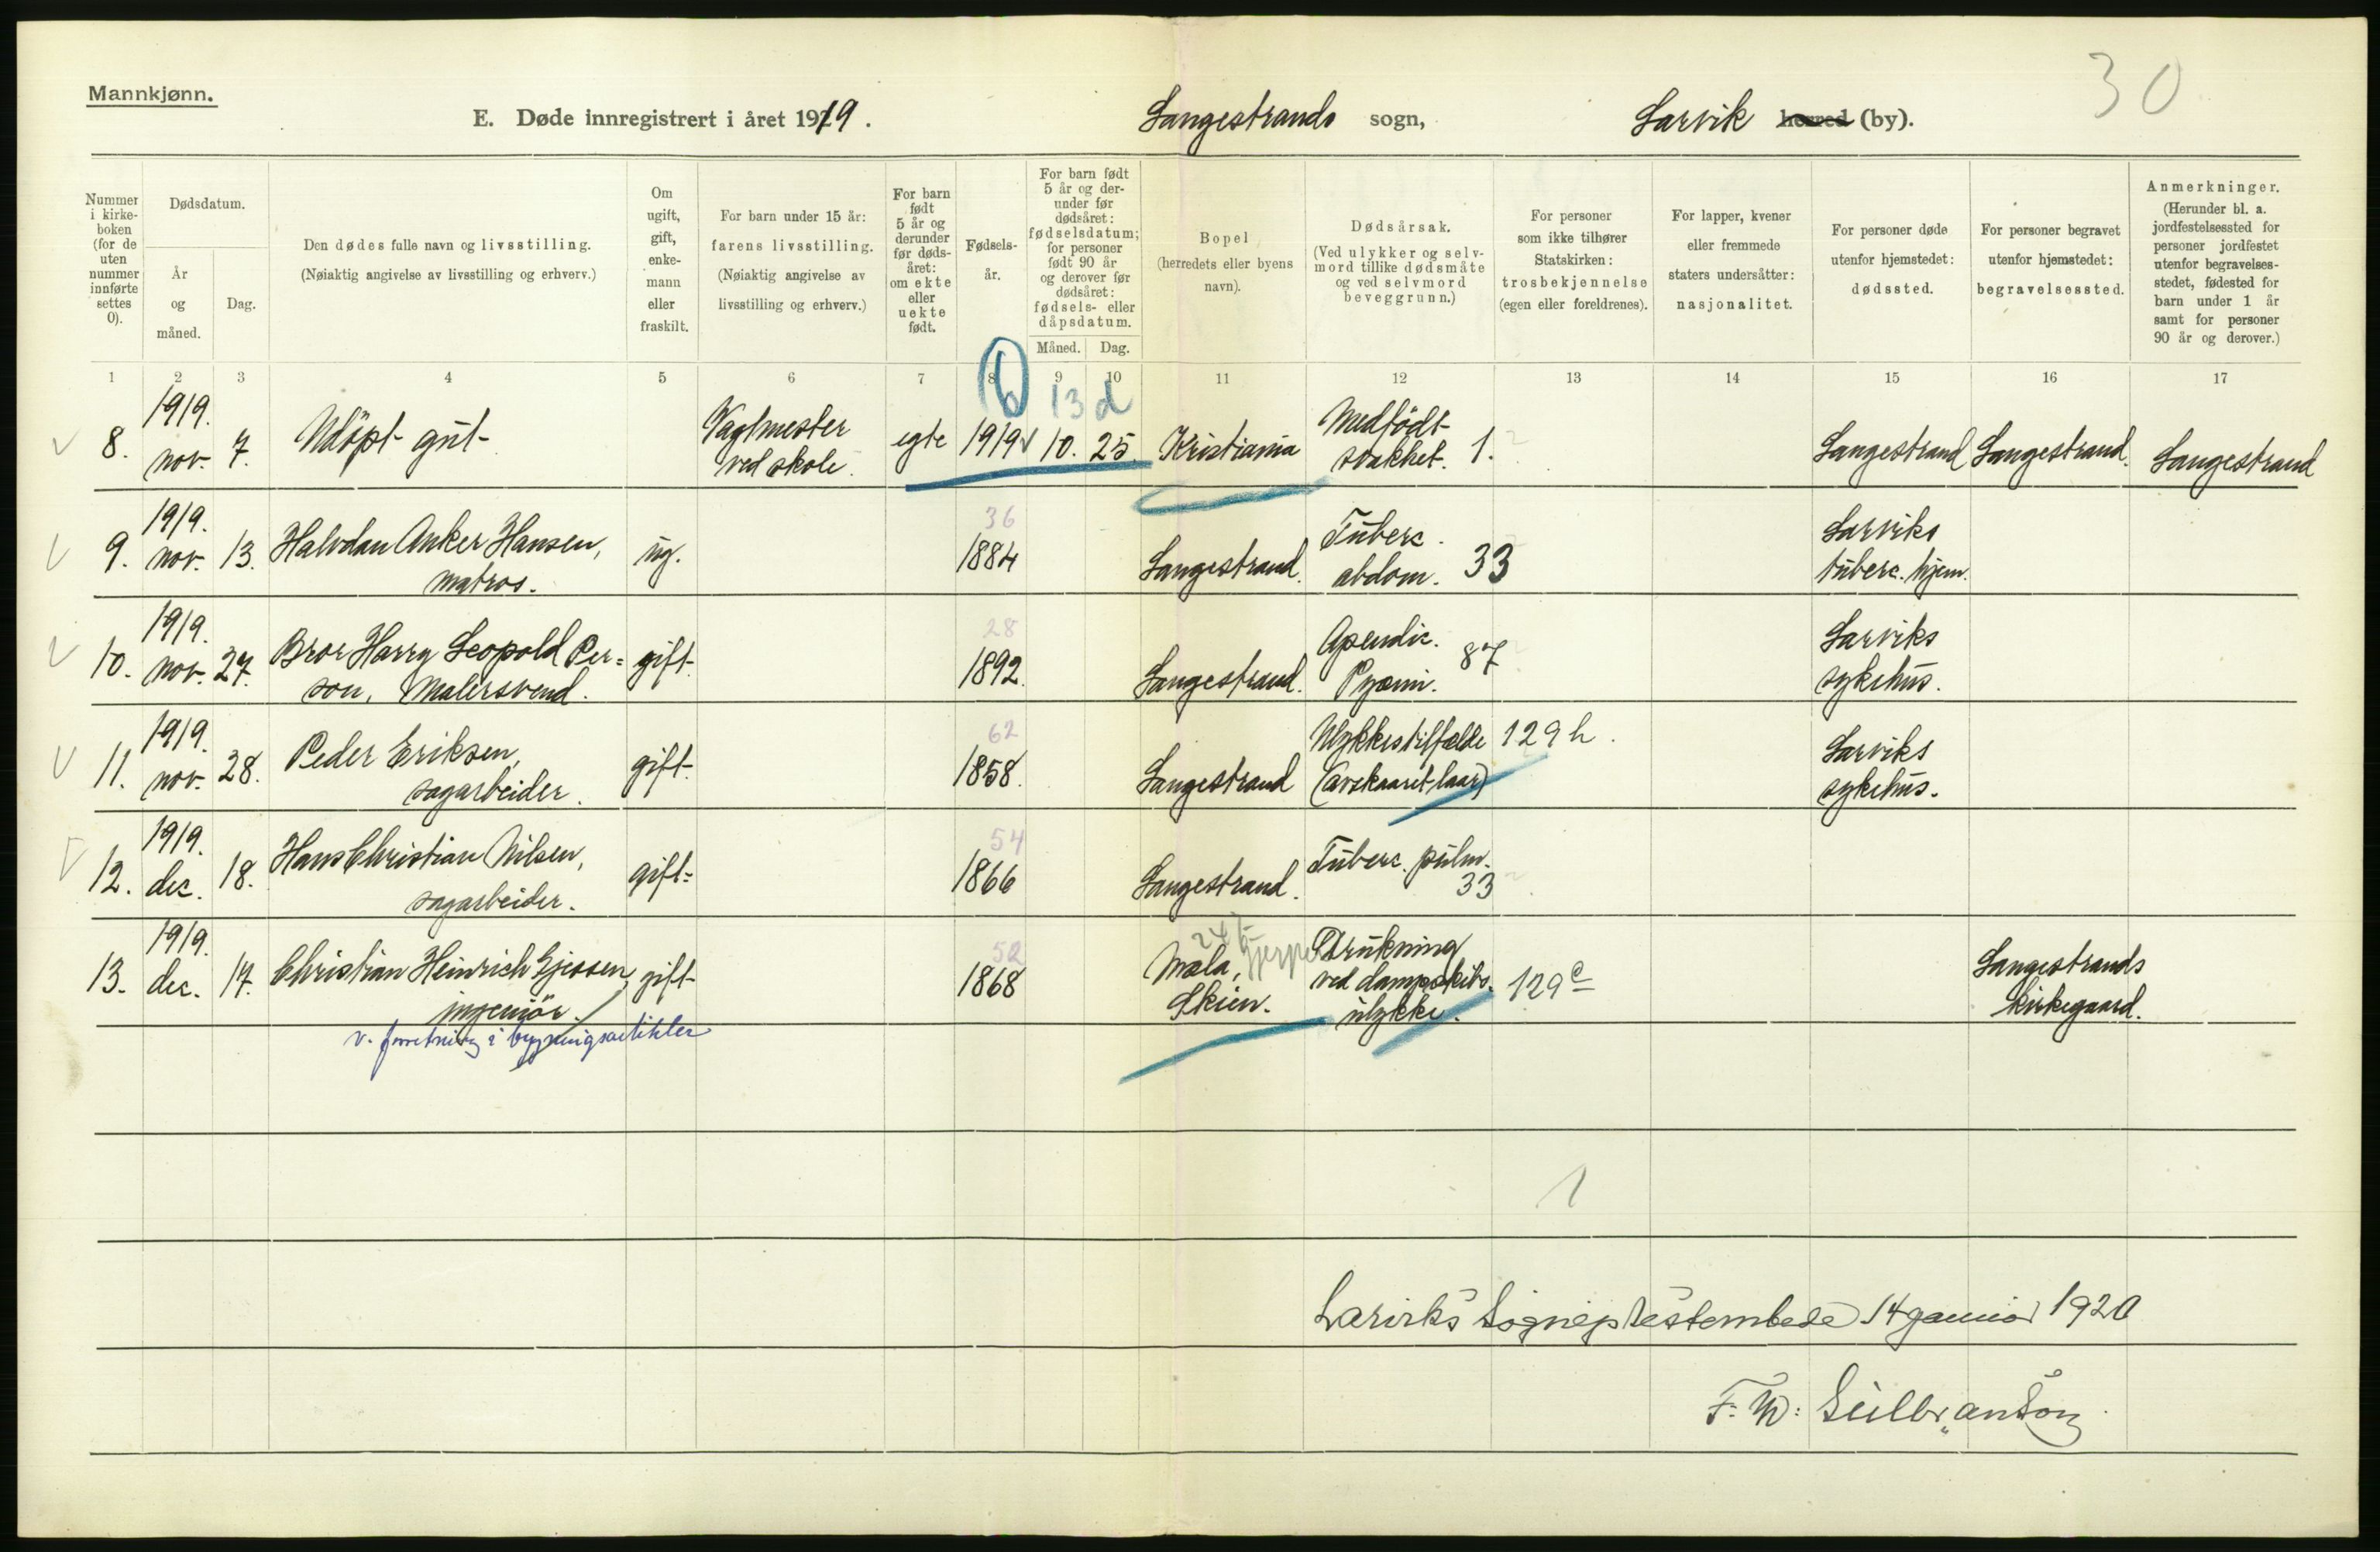 Mannkjønn.
30
E. Døde innregistrert i året 1919. Langestrands sogn, Larvik herred (by).
Nummer i kirke-boken (for de uten nummer innførte settes 0).
Dødsdatum.
År og måned.
Dag.
Den dødes fulle navn og livsstilling.
(Nøiaktig angivelse av livsstilling og erhverv.)
Om ugift, gift, enke-mann eller fraskilt.
For barn under 15 år:
farens livsstilling.
(Nøiaktig angivelse av livsstilling og erhverv.)
For barn født 5 år og derunder før døds-året: om ekte eller uekte født.
Fødsels-år.
For barn født 5 år og der-under før dødsåret: fødselsdatum; for personer født 90 år og derover før dødsåret: fødsels- eller dåpsdatum.
Måned. Dag.
Bopel
(herredets eller byens navn).
Dødsårsak.
(Ved ulykker og selv-mord tillike dødsmåte og ved selvmord beveggrunn.)
For personer som ikke tilhører Statskirken: trosbekjennelse (egen eller foreldrenes).
For lapper, kvener eller fremmede staters undersåtter: nasjonalitet.
For personer døde utenfor hjemstedet: dødssted.
For personer begravet utenfor hjemstedet: begravelsessted.
Anmerkninger.
(Herunder bl. a. jordfestelsessted for personer jordfestet utenfor begravelses-stedet, fødested for barn under 1 år samt for personer 90 år og derover.)
1 2 3 4 5 6 7 8 9 10 11 12 13 14 15 16 17
13 d
8. 1919. nov. 7. Udöpt gut Vagtmester ved skole. egte 1919 10. 25. Kristiania Medfödt svakhet. 1. Langestrand Langestrand. Langestrand
36
9. 1919. nov. 13. Halvdan Anker Hansen, matros. ug. 1884 Langestrand. Tuberc. abdom. 33 Larviks tuberc. hjem.
28
10. 1919. nov. 27. Bror Harry Leopold Per=son, Malersvend. gift. 1892. Langestrand. Apendic. Pyæmi. 87 Larviks sykehus.
62
11. 1919. nov. 28. Peder Eriksen, sagarbeider. gift. 1858. Langestrand Ulykkestilfælde (avskaaret laar) 129 h. Larviks sykehus.
54
12. 1919. dec. 18. Hans Christian Nilsen, sagarbeider. gift= 1866 Langestrand. Tuberc. pulm. 33
52
13. 1919. dec. 17. Christian Heinrich Gjessen, ingeniör. gift 1868 Mæla, Gjerpen Skien. Drukning ved dampskibs. ulykke. 129 c Langestrands kirkegaard.
v. forretning i bygningsartikler
1
Larviks Sogneprestembede 14 januar 1920
F. W. Gulbranson